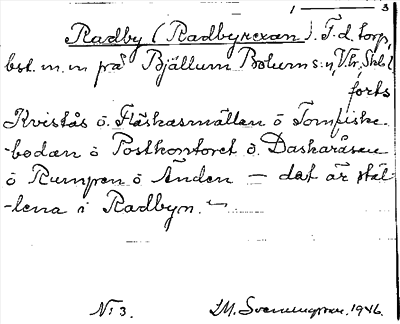 1 — 3
Radby (Radbyrexan). F.d. torp,
bst. m. m på Bjällum Bolum s:n, Vtr, Skbl
forts
Kvistås ö Fläskasmällan ö Tomfiske-
-bodan ö Postkontoret ö Daskaråsen
ö Rumpen ö Änden — dat är stäl-
-lena i Radbyn. —
Nr 3. I.M. Svenungsson. 1946.